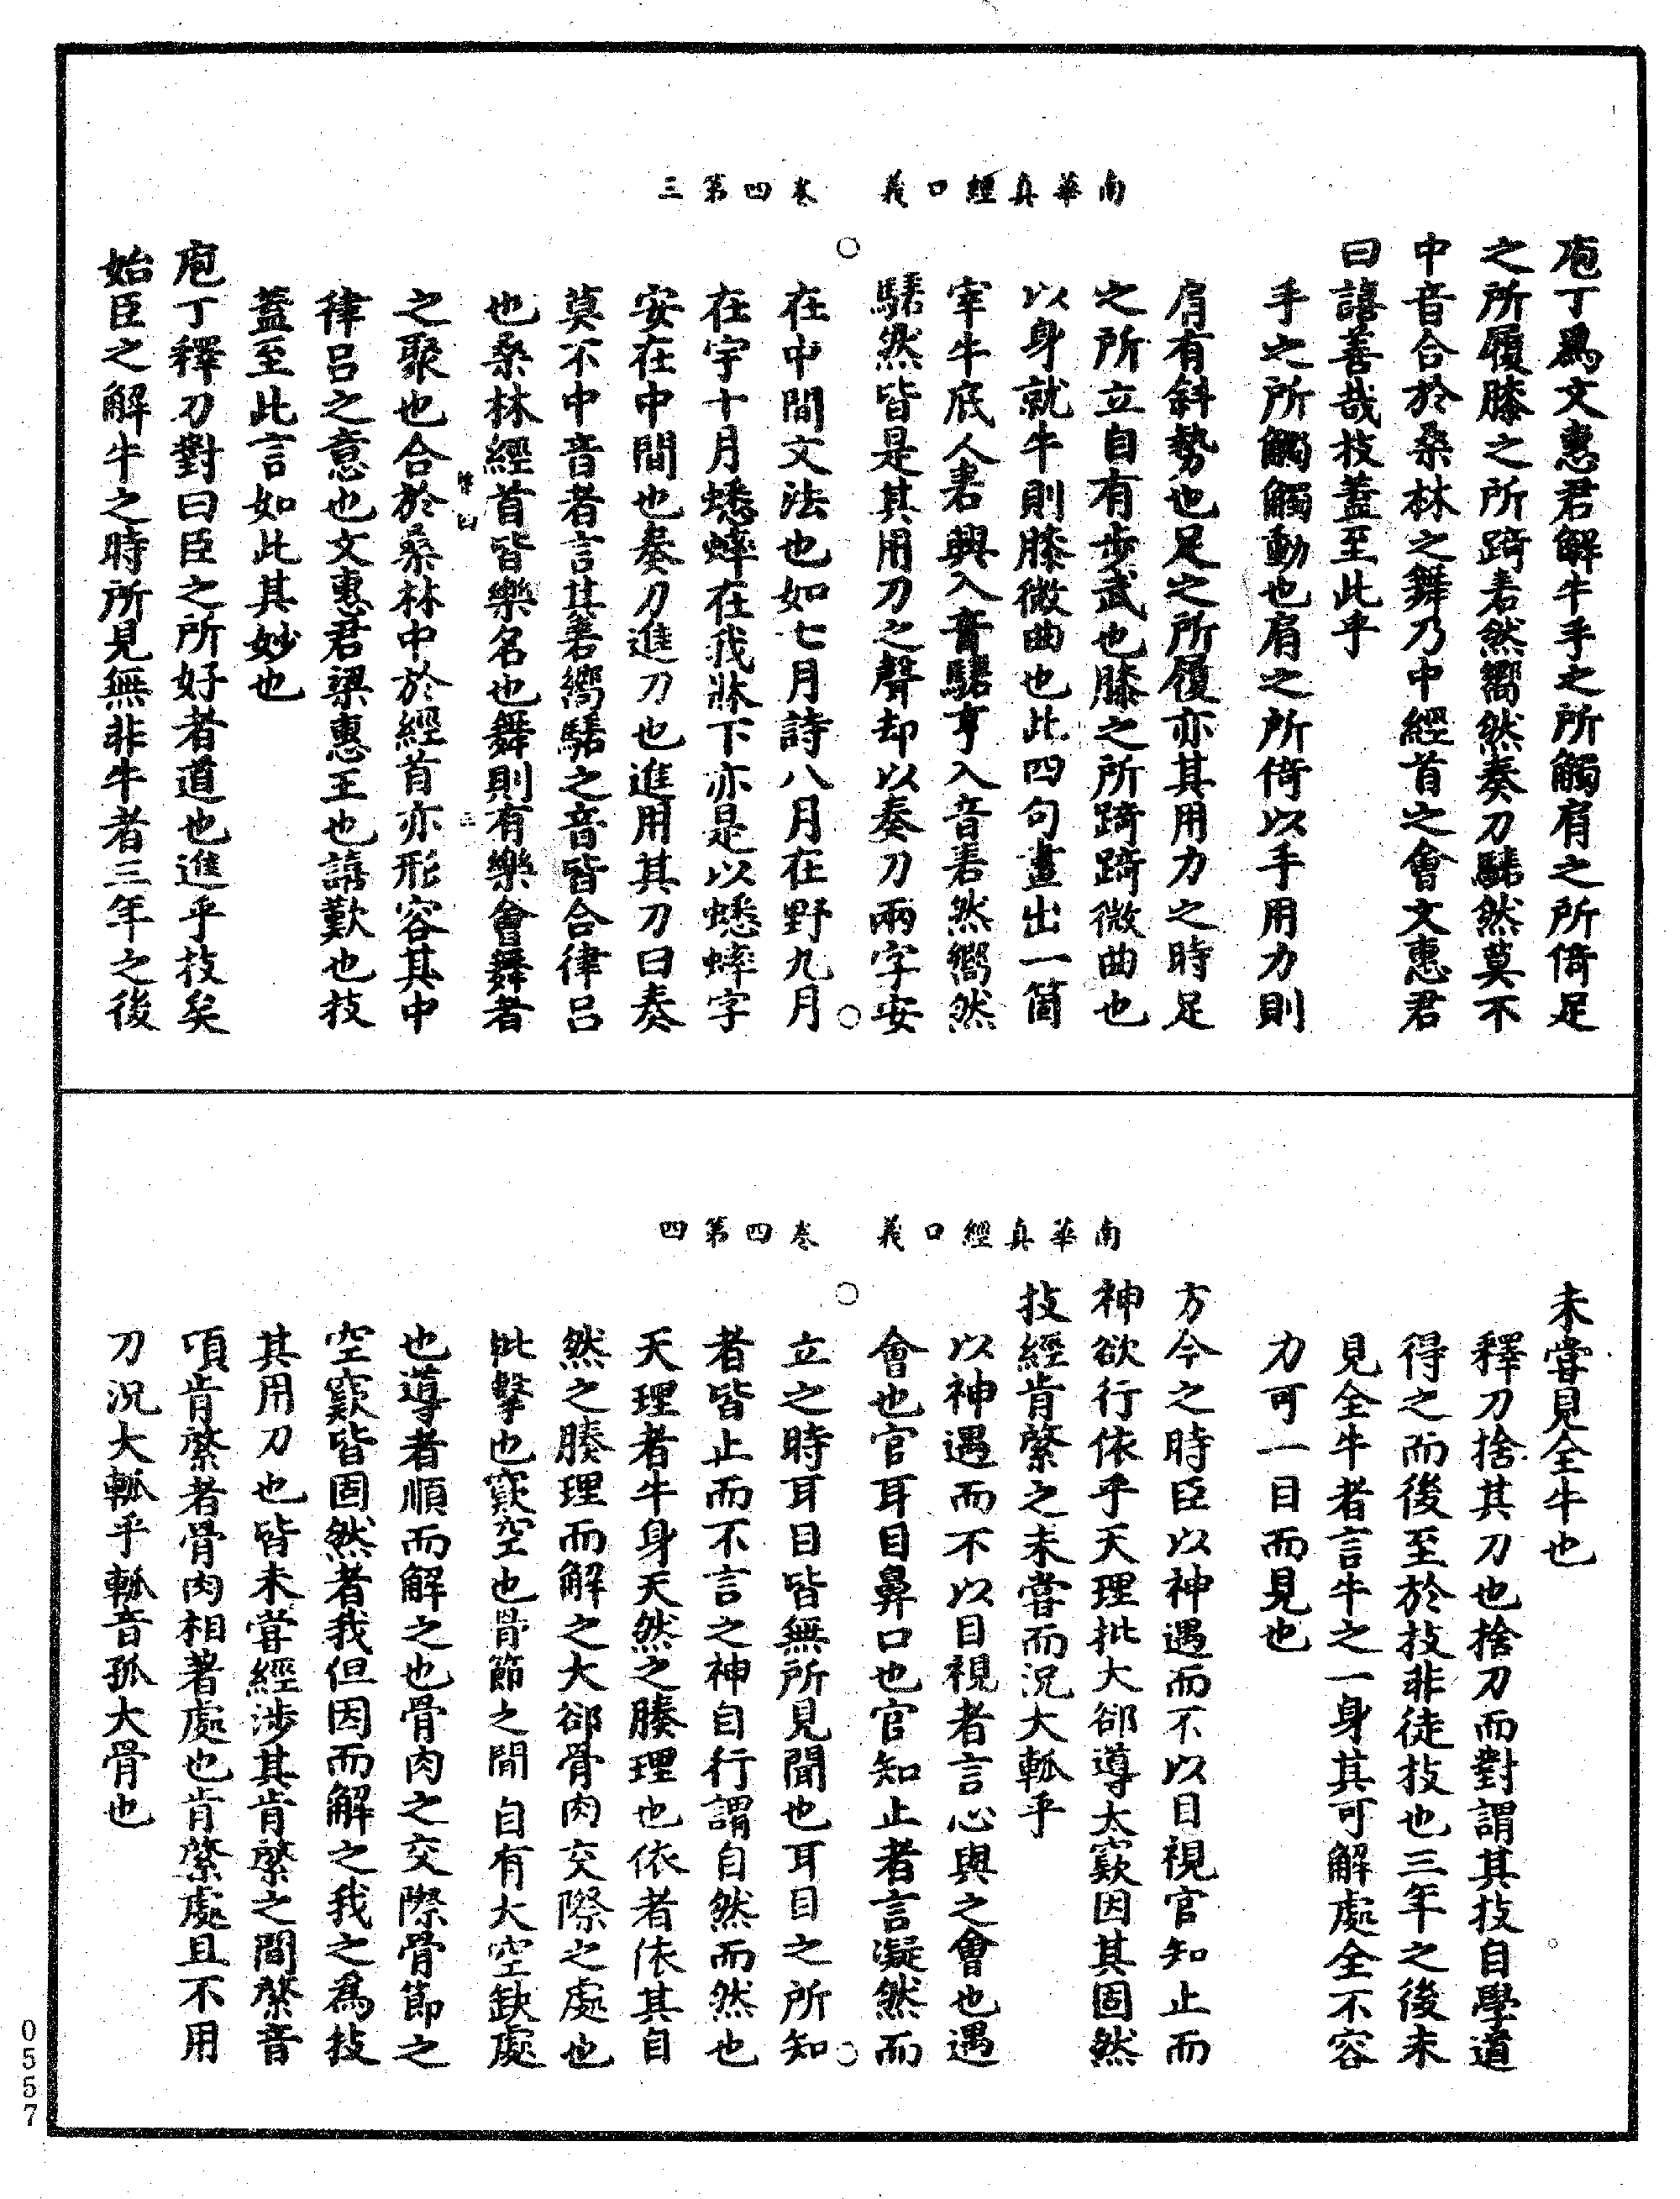 南華真經口義　卷四第三
庖丁爲文惠君解牛手之所觸肩之所倚足
之所履膝之所踦砉然嚮然奏刀騞然莫不
中音合於桑林之舞乃中經首之會文惠君
曰譆善哉技蓋至此乎
手之所觸觸動也肩之所倚以手用力則
肩有斜勢也足之所履亦其用力之時足
之所立自有步武也膝之所踦踦微曲也
以身就牛則膝微曲也此四句畫出一箇
宰牛底人砉興入音騞亨入音砉然嚮然
騞然皆是其用刀之聲却以奏刀兩字安
在中間文法也如七月詩八月在野九月
在宇十月蟋蟀在我牀下亦是以蟋蟀字
安在中間也奏刀進刀也進用其刀曰奏
莫不中音者言其砉嚮騞之音皆合律呂
也桑林經首皆樂名也舞則有樂會舞者
之聚也合於桑林中於經首亦形容其中
律呂之意也文惠君梁惠王也譆歎也技
蓋至此言如此其妙也
庖丁釋刀對曰臣之所好者道也進乎技矣
始臣之解牛之時所見無非牛者三年之後
南華真經口義　卷四第四
未嘗見全牛也
釋刀捨其刀也捨刀而對謂其技自學道
得之而後至於技非徒技也三年之後未
見全牛者言牛之一身其可解處全不容
力可一目而見也
方今之時臣以神遇而不以目視官知止而
神欲行依乎天理批大郤導大窾因其固然
技經肯綮之未嘗而況大軱乎
以神遇而不以目視者言心與之會也遇
會也官耳目鼻口也官知止者言凝然而
立之時耳目皆無所見聞也耳目之所知
者皆止而不言之神自行謂自然而然也
天理者牛身天然之腠理也依者依其自
然之腠理而解之大郤骨肉交際之處也
批擊也窾空也骨節之間自有大空缺處
也導者順而解之也骨肉之交際骨節之
空窾皆固然者我但因而解之我之爲技
其用刀也皆未嘗經涉其肯綮之間綮音
項肯綮者骨肉相著處也肯綮處且不用
刀況大軱乎軱音孤大骨也
0557